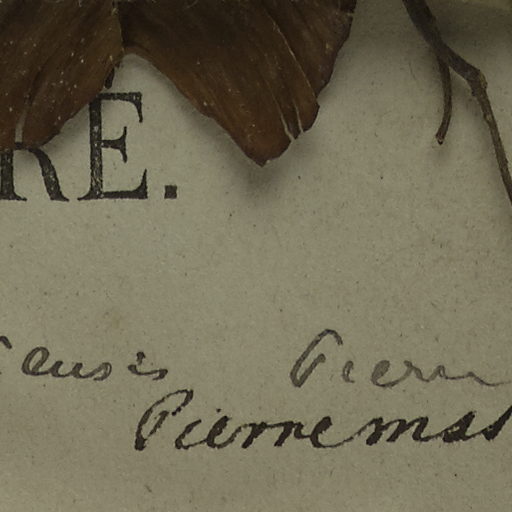 RÉ.
ensis Pierre
Pierremas